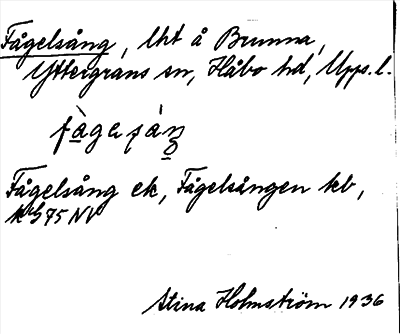 Fågelsång, lht å Brunna,
Yttergrans sn, Håbo hd, Upps. l.
fàgesáŋ
Fågelsång ek, Fågelsången kb,
75 NV
Stina Holmström 1936